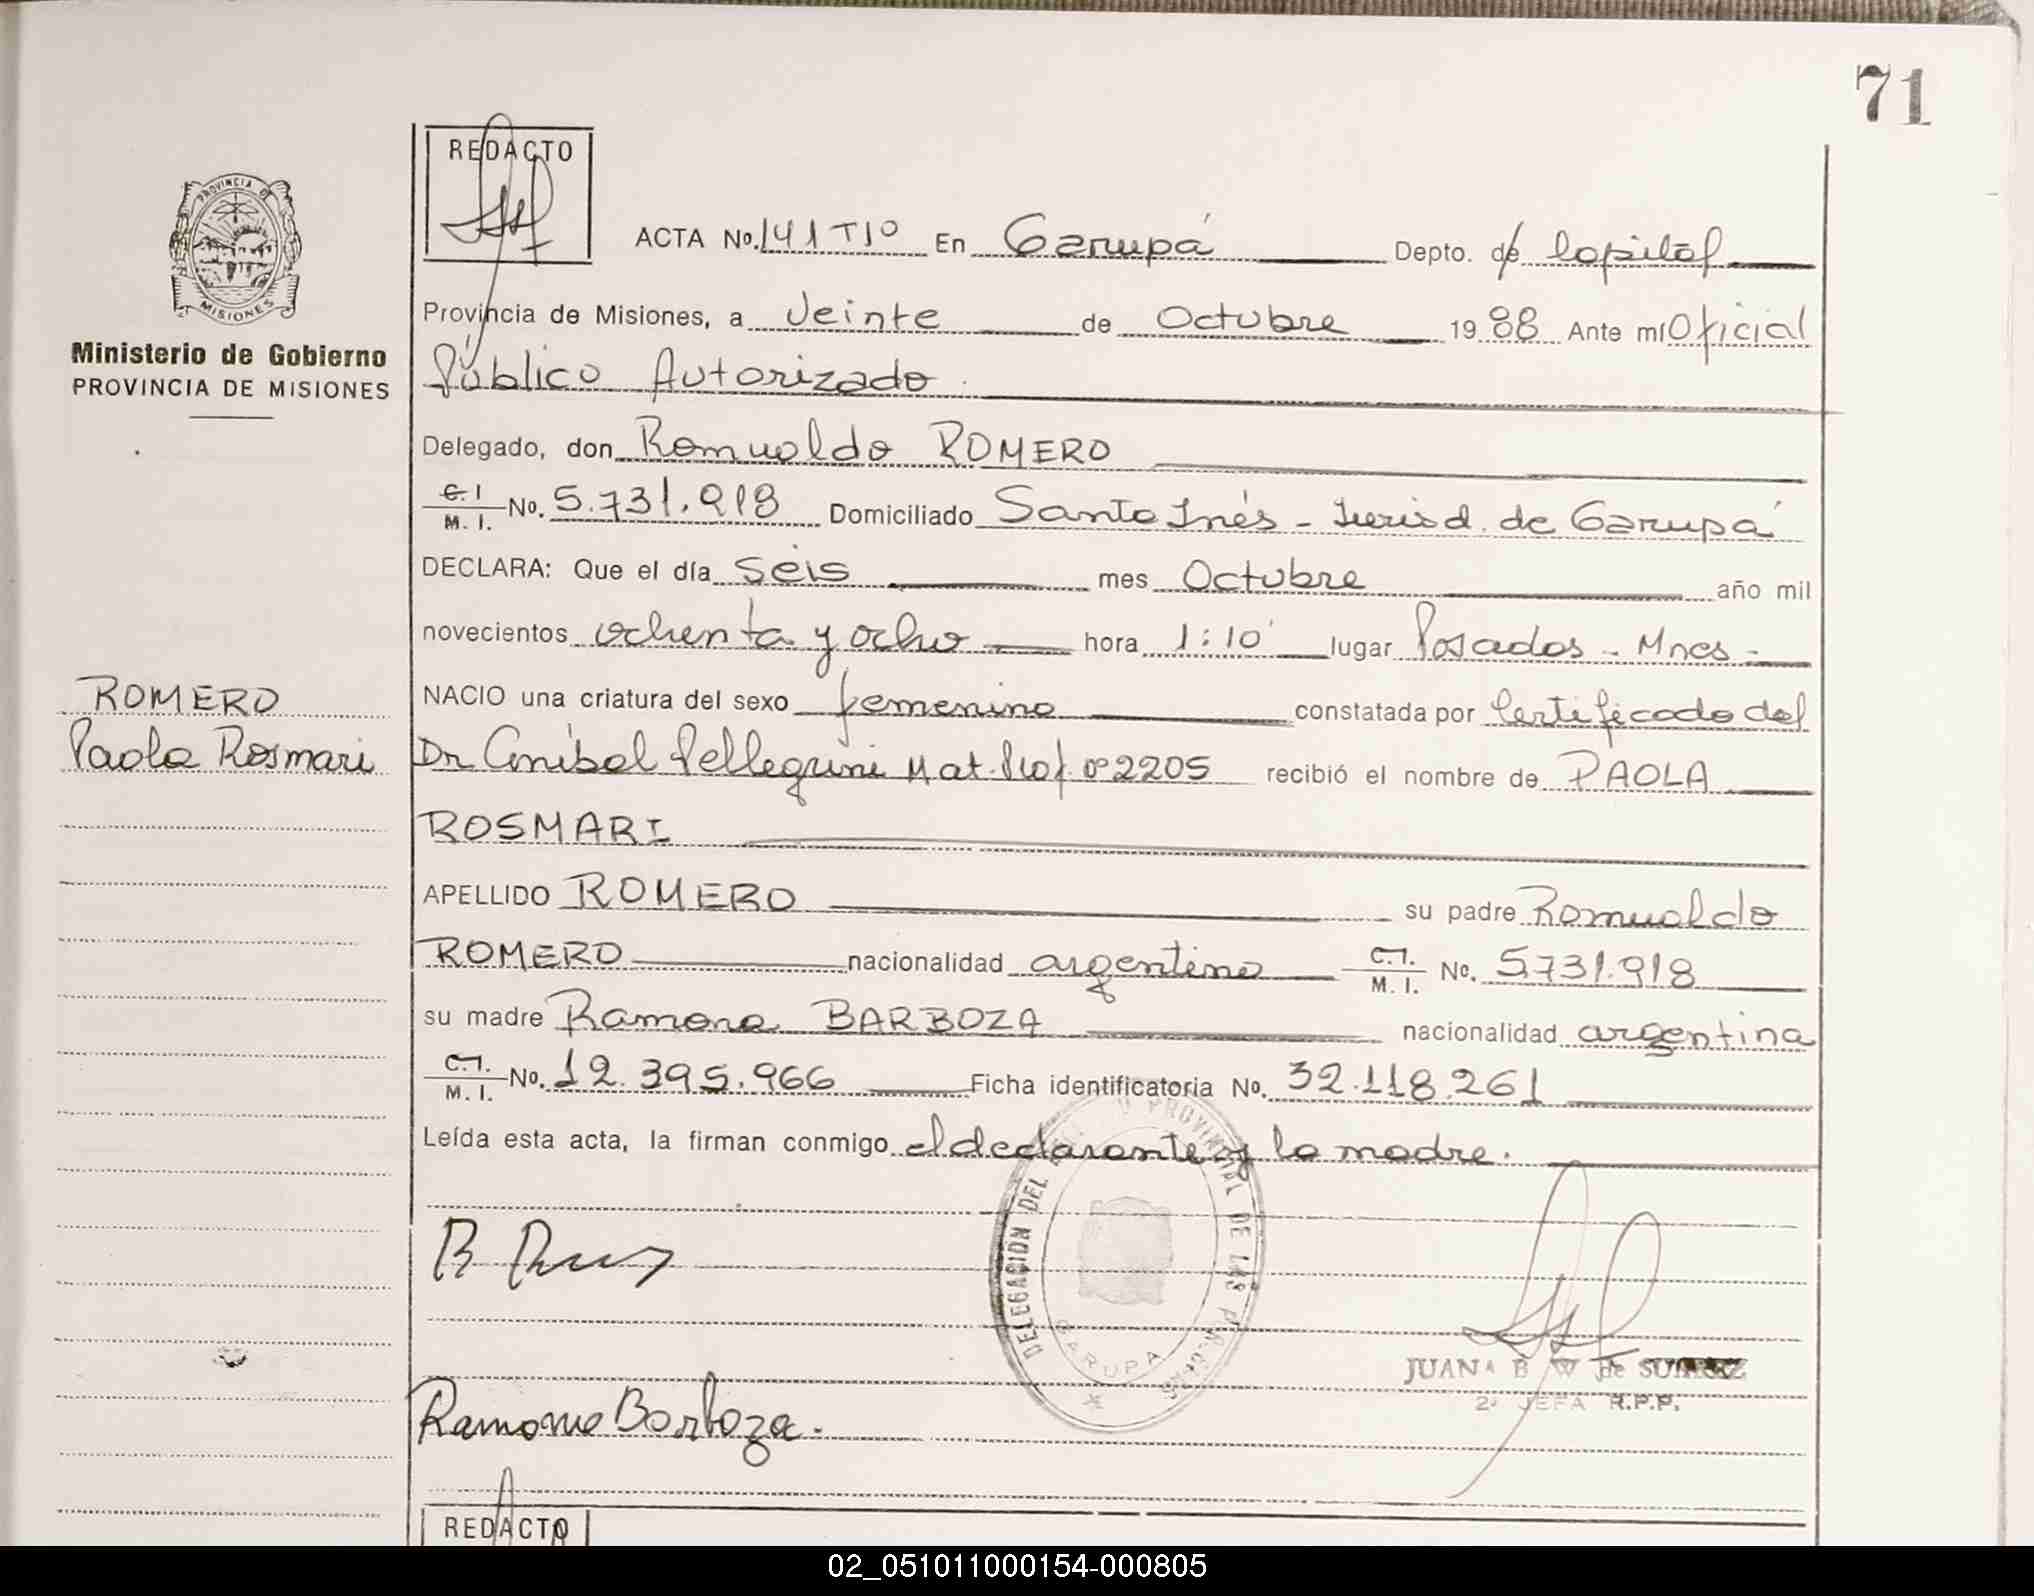 71
REDACTO
PROVINCIA DE
MISIONES
Ministerio de Gobierno
PROVINCIA DE MISIONES
ACTA No. 141 TIº En Garupá Depto. de Capital
Provincia de Misiones, a Veinte de Octubre 1988 Ante mí Oficial
Público Autorizado
Delegado, don Romualdo ROMERO
C.I M. I. No. 5.731.918 Domiciliado Santa Inés - Jurisd. de Garupá
DECLARA: Que el día Seis mes Octubre año mil
novecientos ochenta y ocho hora 1:10' lugar Posadas - Mnes -
ROMERO
Paola Rosmari
NACIO una criatura del sexo femenino constatada por Certificado del
Dr Anibal Pellegrini Mat. Prof. nº 2205 recibió el nombre de PAOLA
ROSMARI
APELLIDO ROMERO su padre Romualdo
ROMERO nacionalidad argentino C.I. M. I. No. 5.731.918
su madre Ramona BARBOZA nacionalidad argentina
C.I. M. I. No. 12.395.966 Ficha identificatoria No. 32.118.261
Leída esta acta, la firman conmigo el declarante y la madre.
DELEGACIÓN DEL PROVINCIAL DE LAS
GARUPA
JUANA B W de SUAREZ
2ª JEFA R.P.P.
Ramona Barboza.
REDACTO
02_051011000154-000805